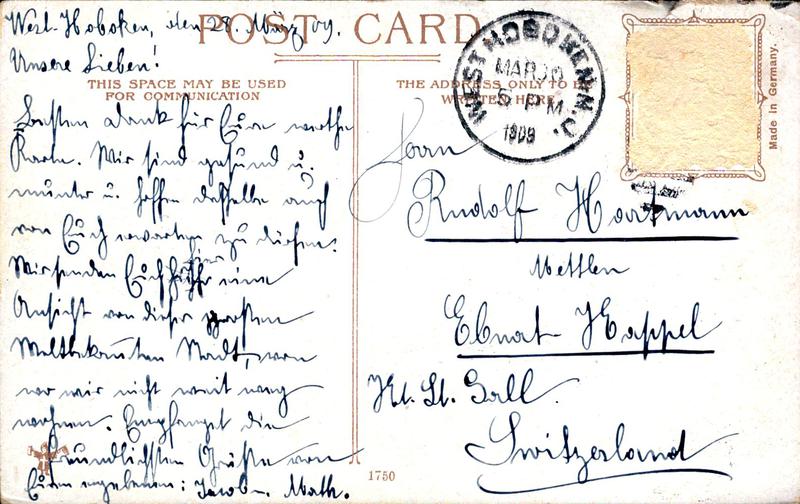 POST CARD
West-Hoboken, den 28. März 09.
Unsere Lieben!
THIS SPACE MAY BE USED
FOR COMMUNICATION
Besten Dank für Eure werthe
Karte. Wir sind gesund u.
munter u. hoffen dasselbe auch
von Euch erwarten zu dürfen.
Wir senden Euch hier eine
Ansicht von dieser grossten
Weltbekannten Stadt, von
wo wir nicht weit weg
wohnen. Empfanget die
freundlichsten Grüsse von
Euren ergebenen: Jacob. Math.
THE ADDRESS ONLY TO BE
WRITTEN HERE
WEST HOBOKEN N.J.
MAR
PM
1909
Herrn
Rudolf Hartmann
Mettlen
Ebnat-Kappel
Kt. St. Gall.
Switzerland
Made in Germany.
1750